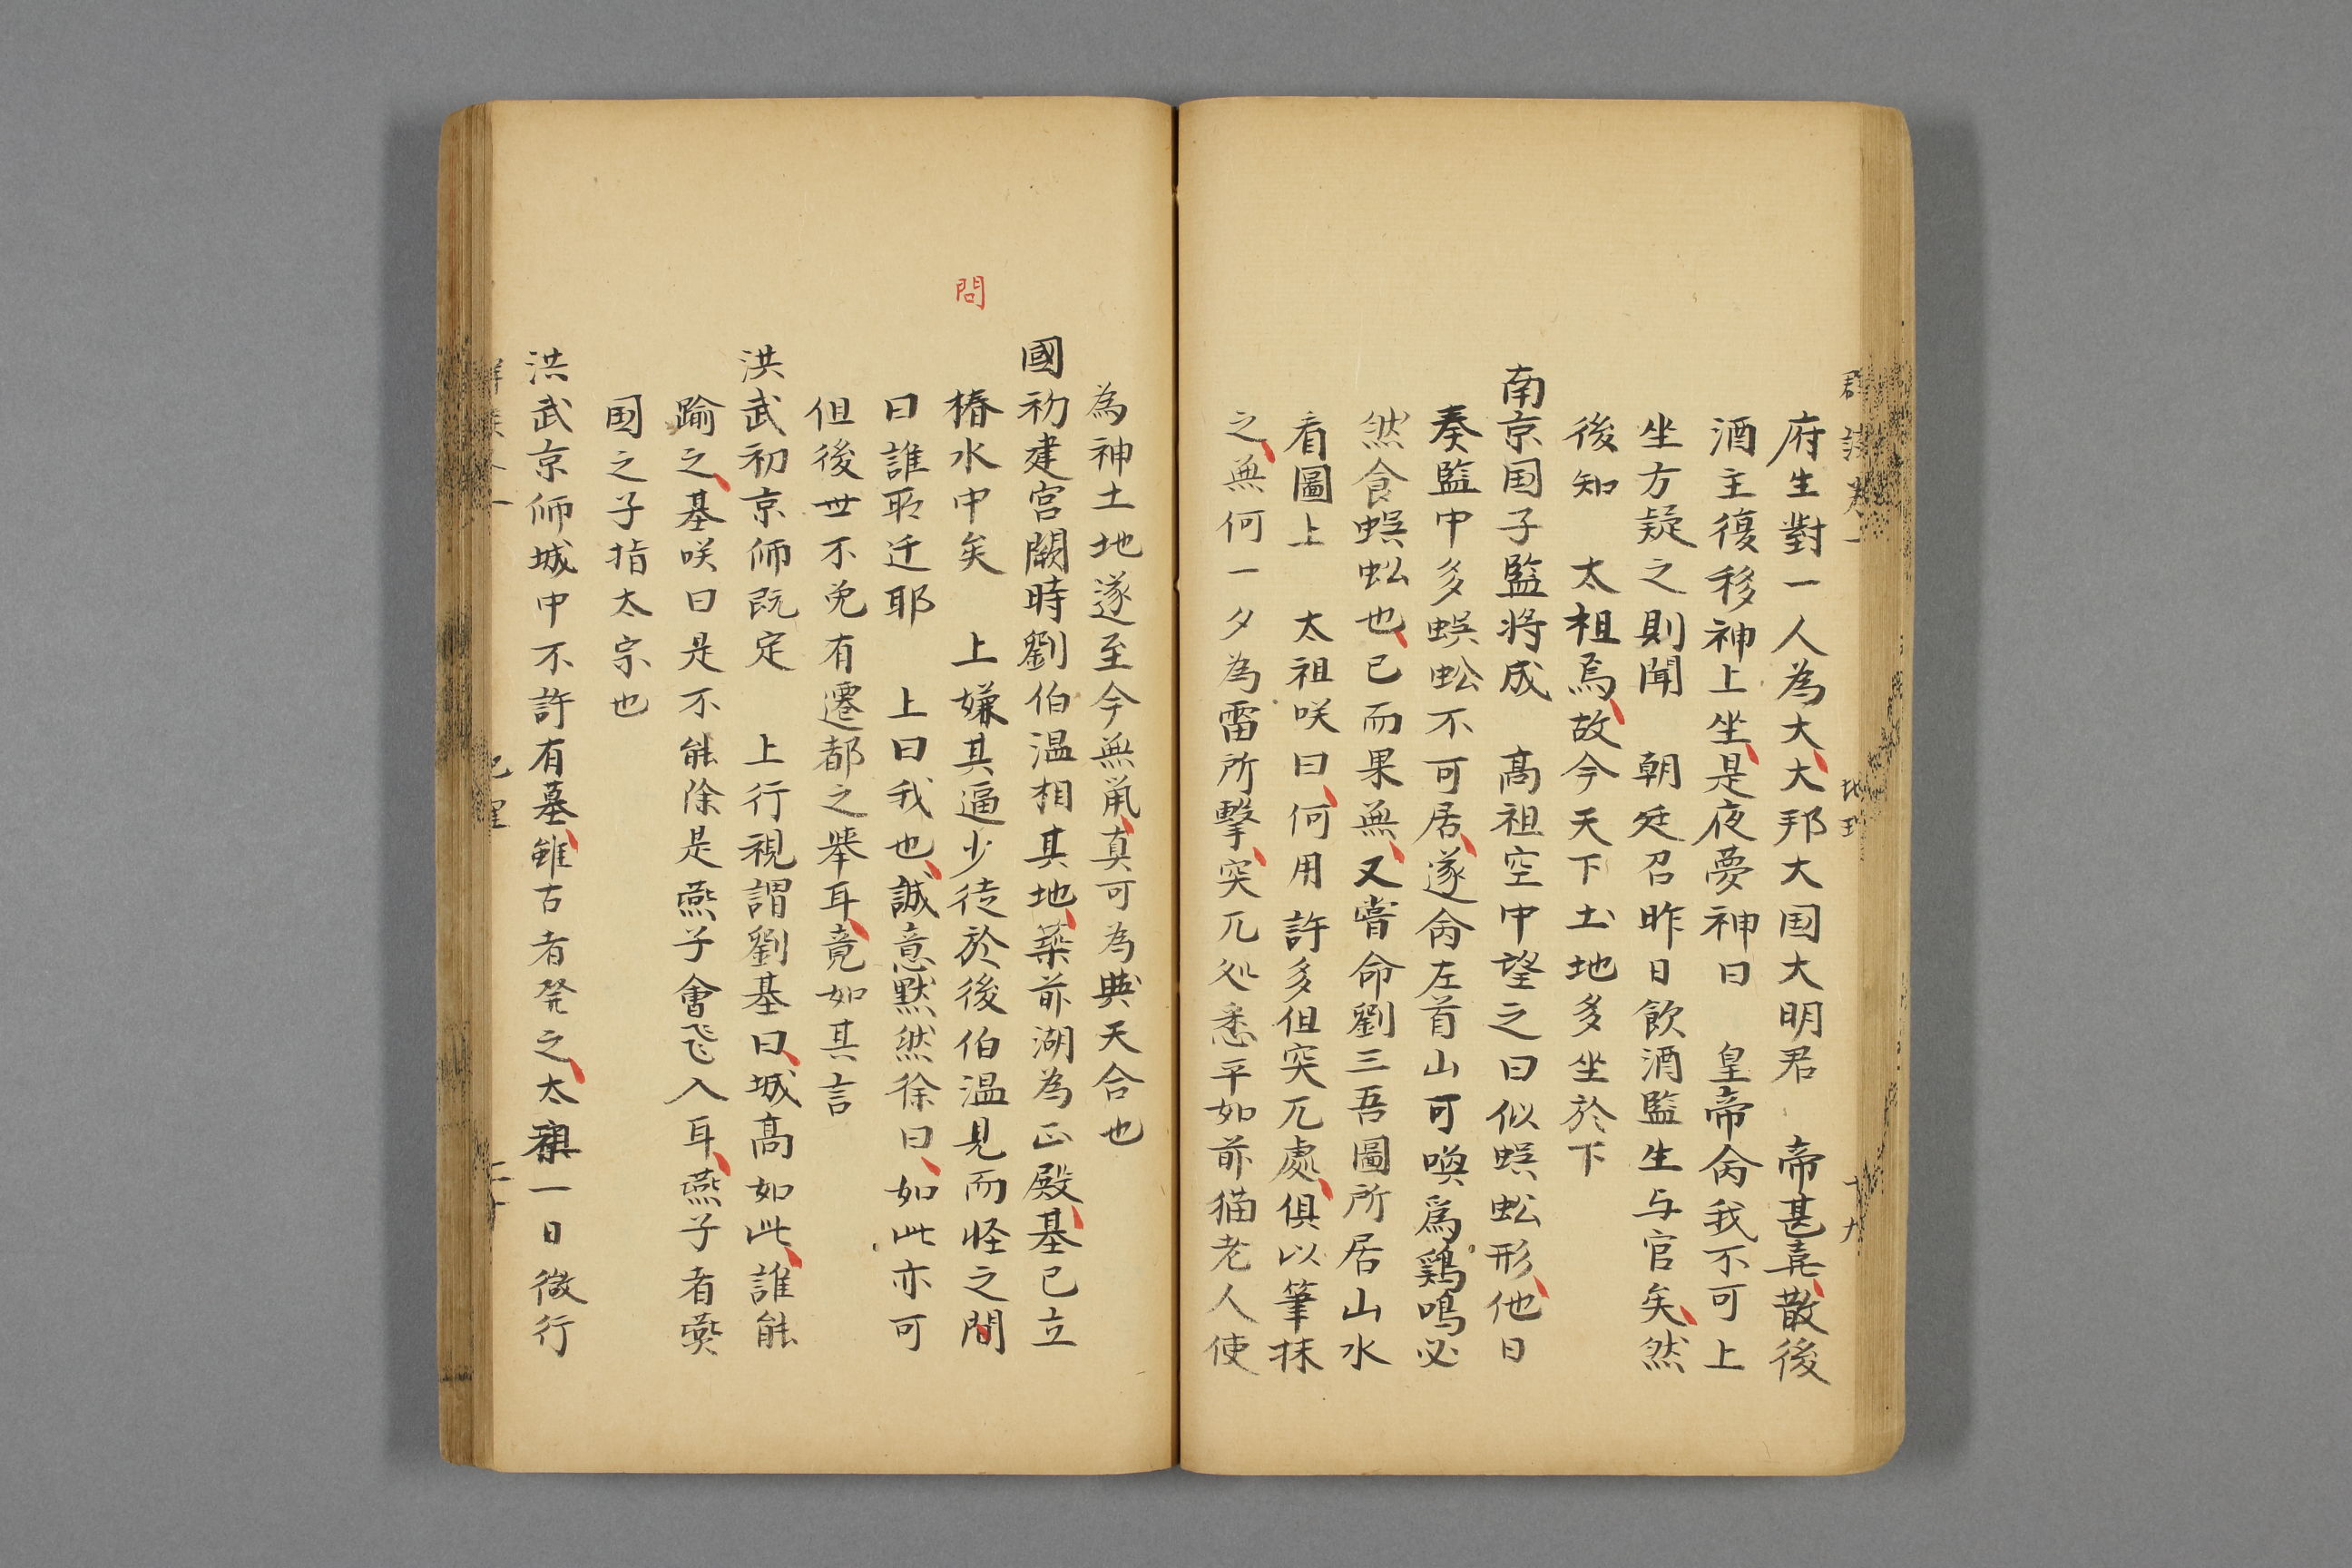 府生對一人為大大邦大国大明君　帝甚喜散後
酒主復移神上坐是夜夢神曰　皇帝俞我不可上
坐方疑之則聞　朝廷召昨日飲酒監生与官矣然
後知　太祖焉故今天下土地多坐於下
南京国子監将成　髙祖空中望之曰似蜈蚣形他日
奏監中多蜈蚣不可居遂俞左首山可喚爲鷄鳴必
然食蜈蚣也已而果無又嘗命劉三吾圖所居山水
看圖上　太祖咲曰何用許多但突兀處俱以筆抹
之無何一夕為雷所擊突兀処悉平如前猫老人使
為神土地遂至今無鼠真可為與天合也
國初建宮闕時劉伯温相其地築前湖為正殿基已立
椿水中矣　上嫌其逼少徒於後伯温見而怪之間
問
曰誰耶迁耶　上曰我也誠意默然徐曰如此亦可
但後世不免有遷都之舉耳竟如其言
洪武初京师既定　上行視謂劉基曰城髙如此誰能
踰之基咲曰是不能除是燕子會飞入耳燕子者燕
国之子指太宗也
洪武京师城中不許有墓雖古者発之太祖一日微行